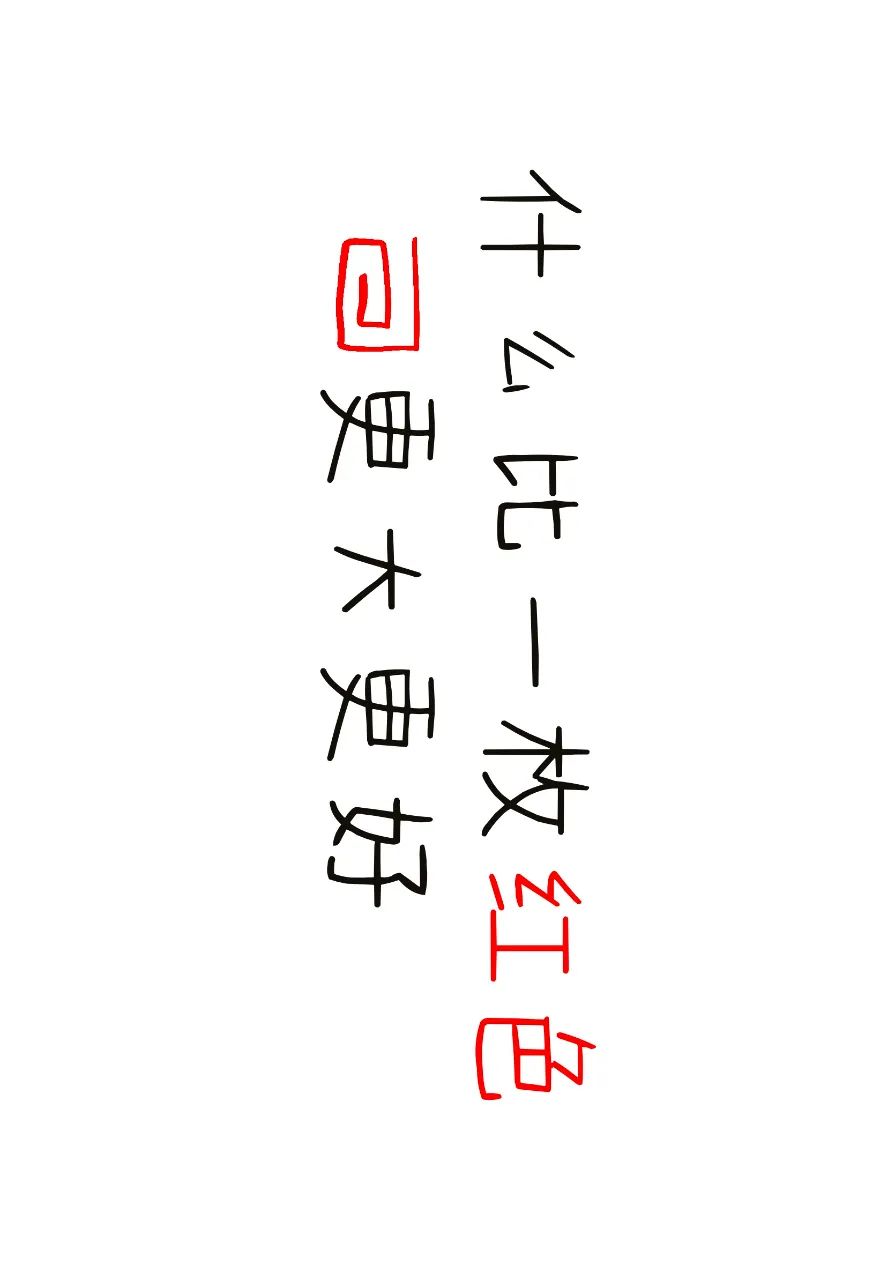 什么比一枚红色
回更大更好